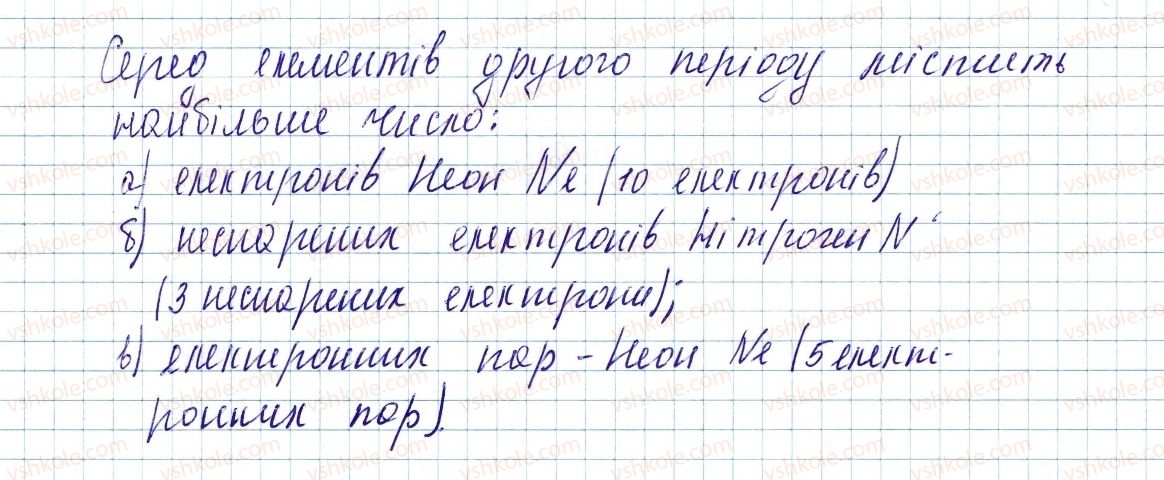 Серед елементів другого періоду містить
найбільше число:
а) електронів Неон Ne (10 електронів)
б) неспарених електронів Нітроген N
(3 неспарених електрони);
в) електронних пар - Неон Ne (5 елект-
ронних пар).